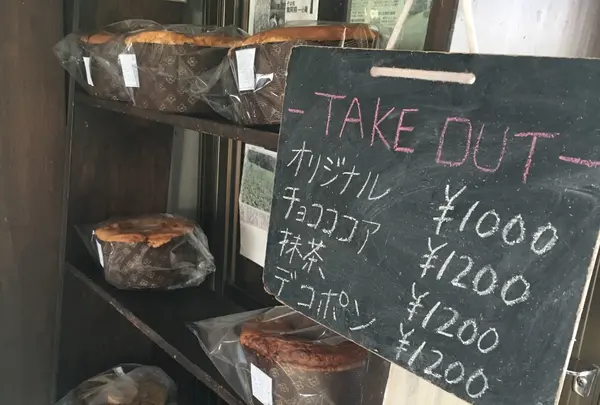 - TAKE OUT -
オリジナル ¥1000
チョコココア ¥1200
抹茶 ¥1200
デコポン ¥1200